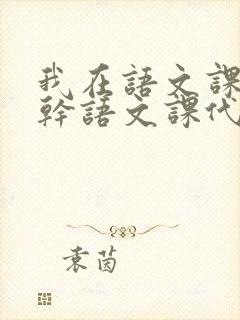 我在語文課
幹語文課代
袁茵